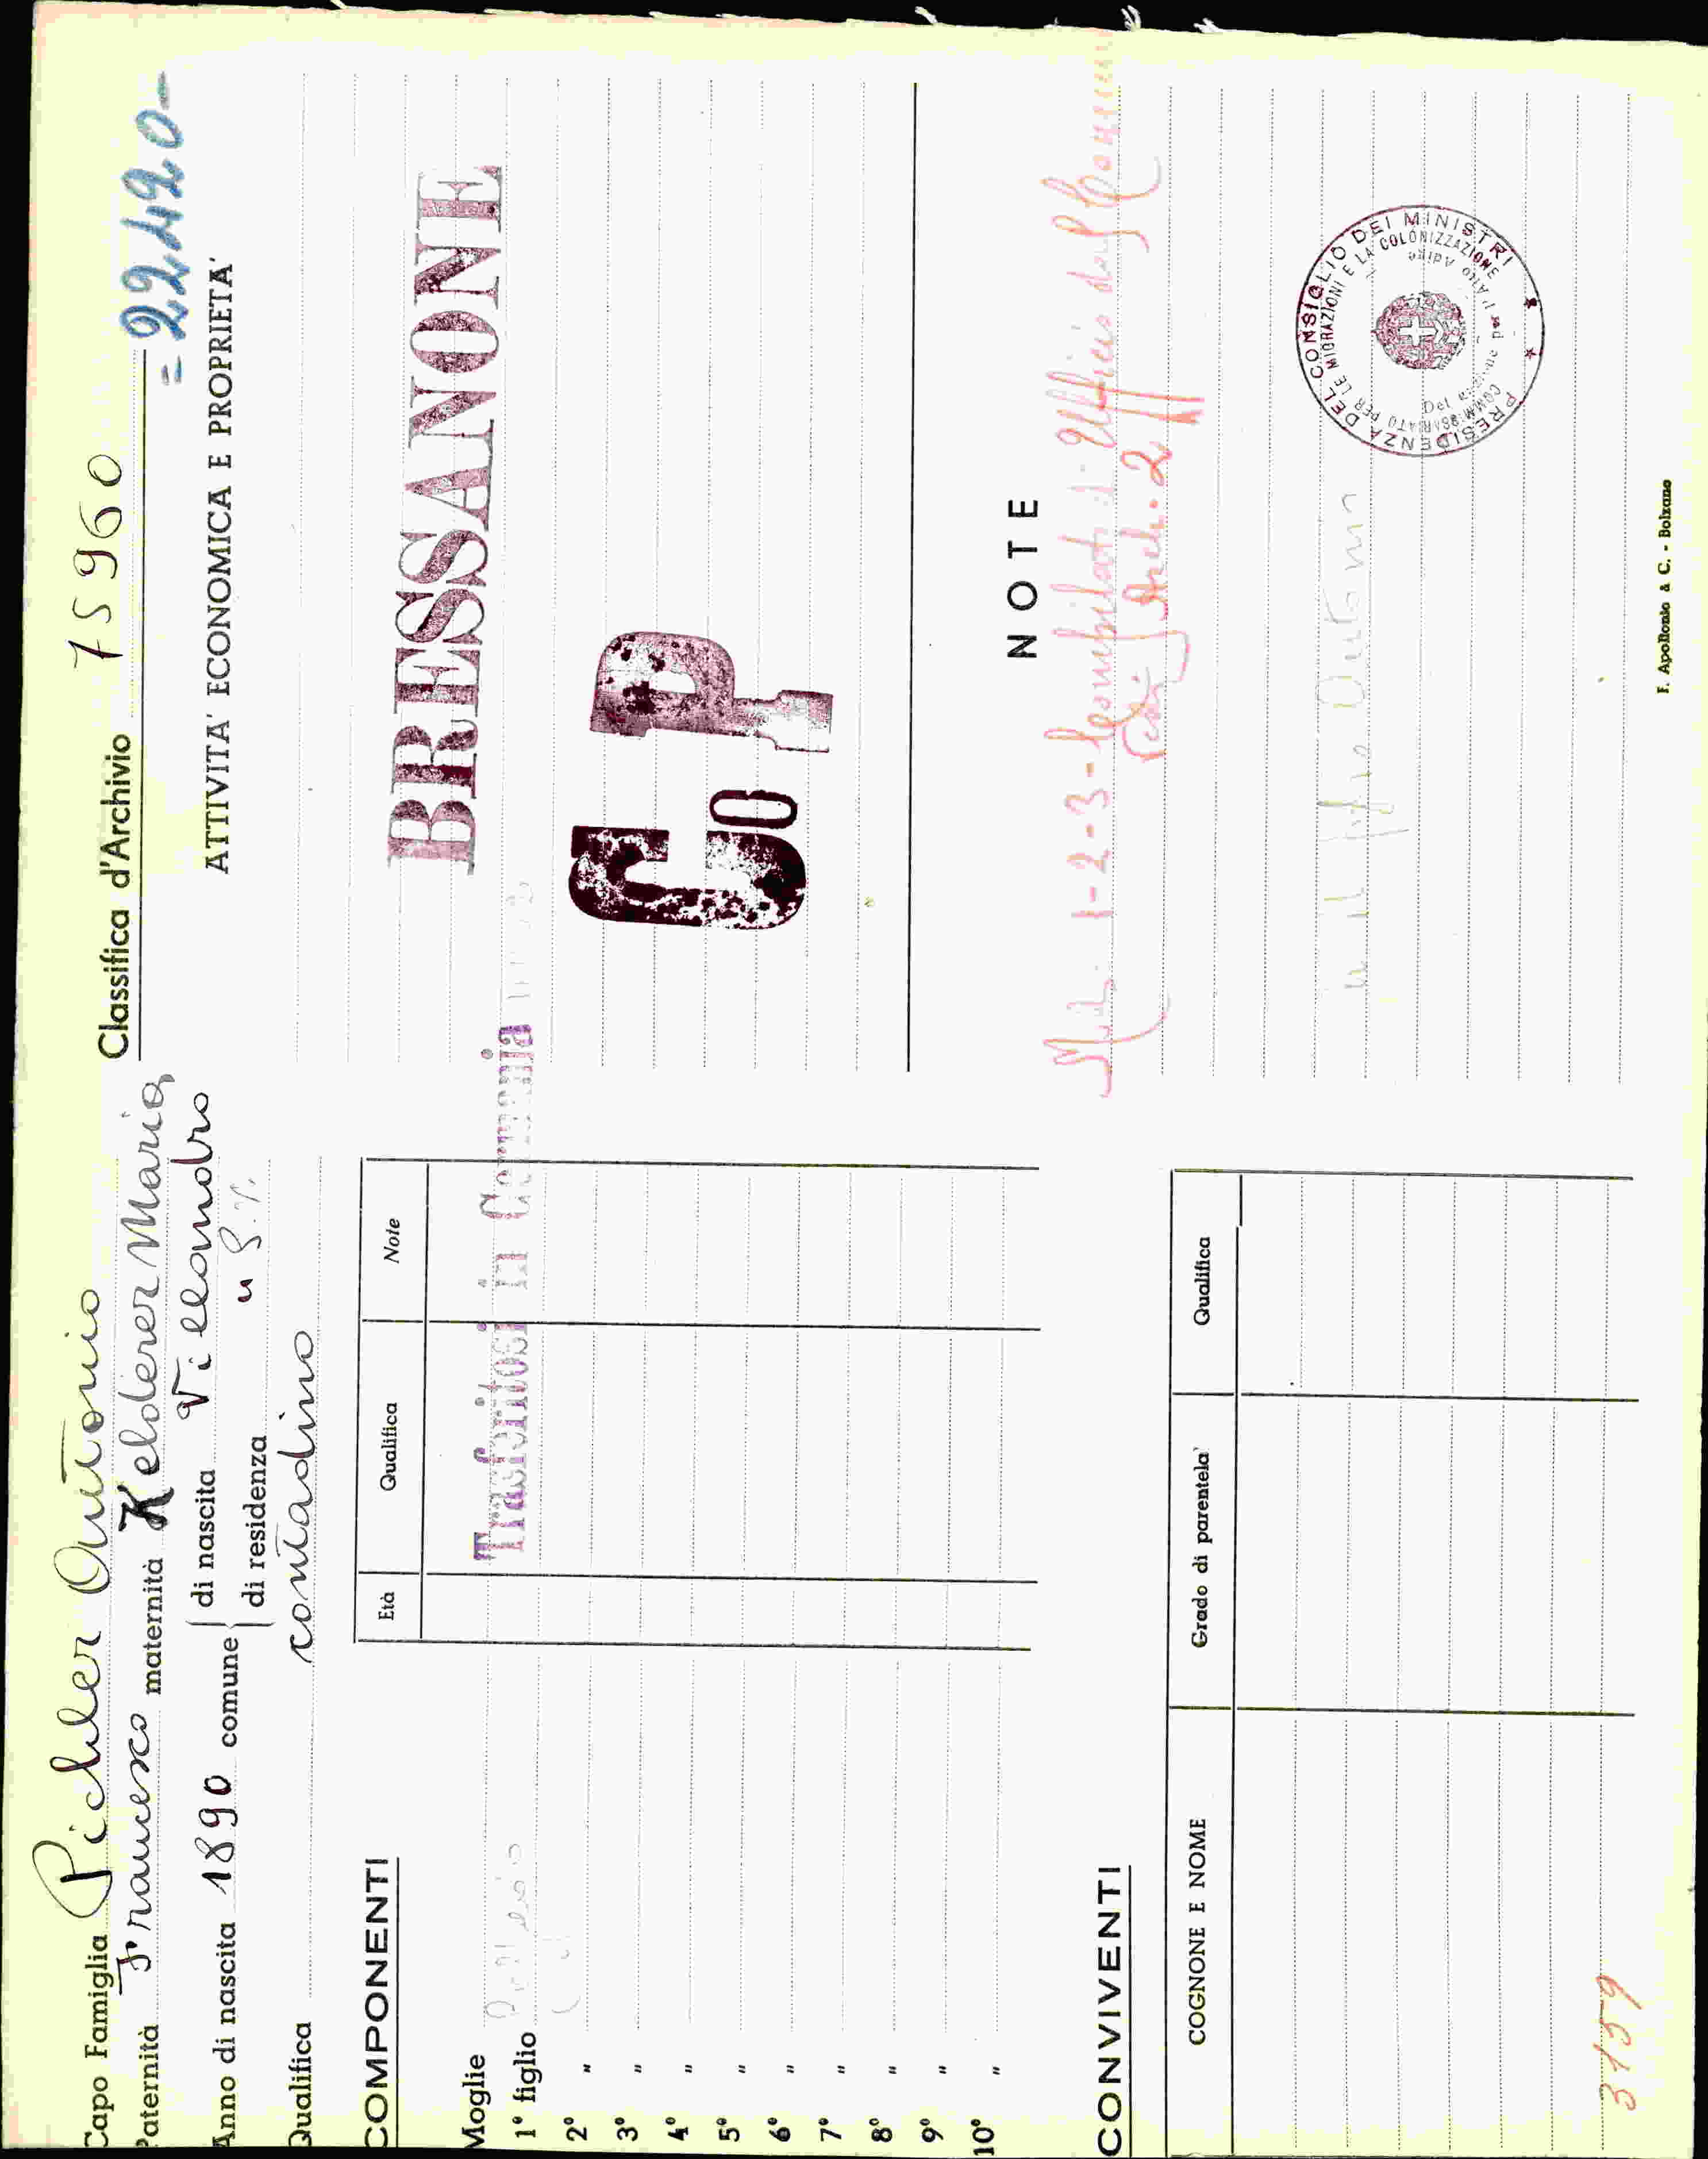 Capo Famiglia Pichler Antonio
Paternità Francesco maternità Kelderer Maria
Anno di nascita 1890 comune di nascita Villandro
di residenza
Qualifica contadino
COMPONENTI
Età Qualifica Note
Moglie
1° figlio
Trasferitosi in Germania
2° "
3° "
4° "
5° "
6° "
7° "
8° "
9° "
10° "
CONVIVENTI
COGNONE E NOME Grado di parentela' Qualifica
37159
Classifica d'Archivio 75960
= 22420-
ATTIVITA' ECONOMICA E PROPRIETA'
BRESSANONE
Co P.
NOTE
Mod. 1-2-3-
PRESIDENZA DEL CONSIGLIO DEI MINISTRI
COMMISSARIATO PER LE MIGRAZIONI E LA COLONIZZAZIONE
per l'Alto Adige
F. Apollonio & C. - Bolzano